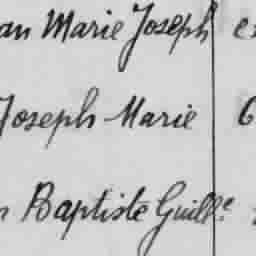 an Marie Joseph
Joseph Marie
Baptiste Guill.e